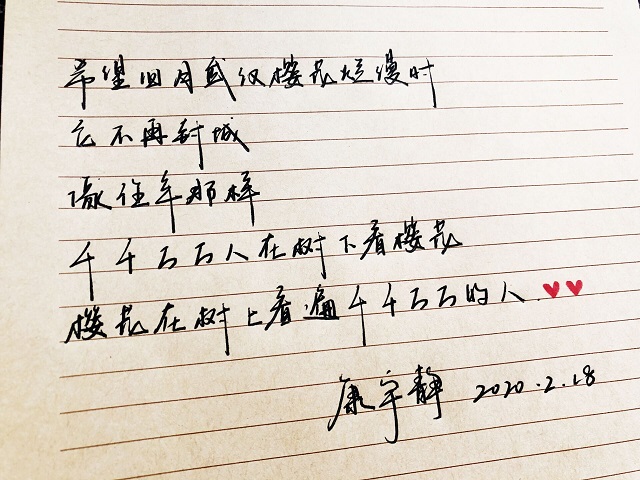 希望四月武汉樱花烂漫时
它不再封城
像往年那样
千千万万人在树下看樱花
樱花在树上看遍千千万万的人
康宇静 2020.2.18